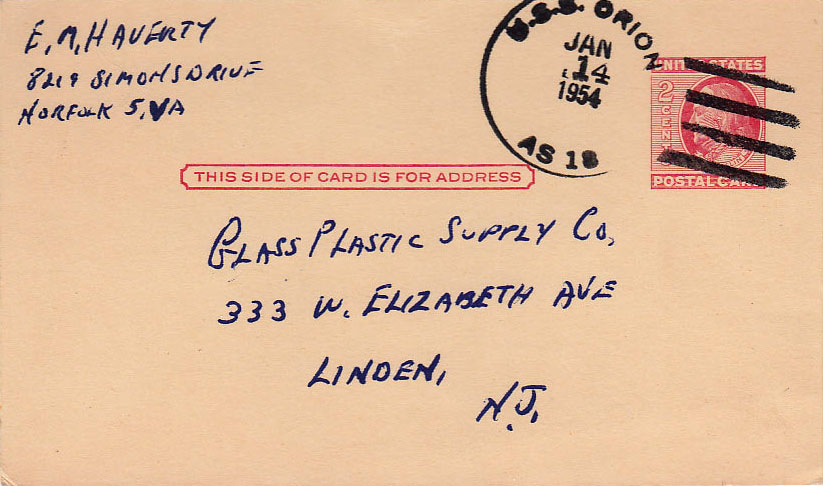 E. M. HAVERTY
8219 SIMONS DRIVE
NORFOLK 5, VA
U.S.S. ORION
JAN
14
1954
AS 18
UNITED STATES
2
CENTS
POSTAL CARD
THIS SIDE OF CARD IS FOR ADDRESS
GLASS PLASTIC SUPPLY CO,
333 W. ELIZABETH AVE
LINDEN,
N.J.